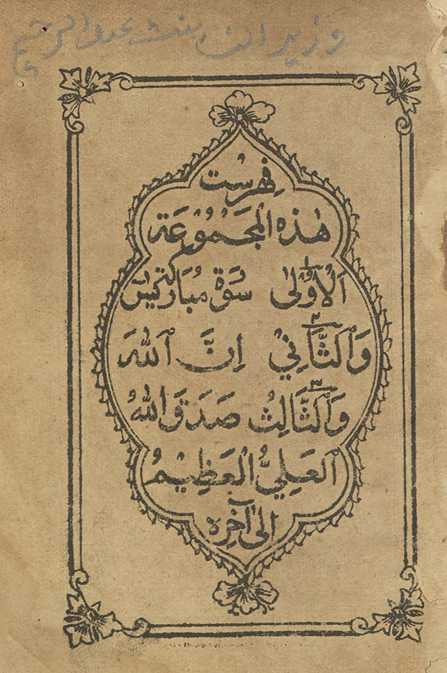 وزيران بنت عبد الرحيم
فهرست
هٰذِهِ الْمَجْمُوْعَة
اَلْاُوْلىٰ سُوْرَة مُبَارَكَة يٰسٓ
وَالثَّانِيْ اِنَّ اللّٰهَ
وَالثَّالِثُ صَدَقَ اللّٰهُ
الْعَلِيُّ الْعَظِيْمُ
اِلىٰ آخره